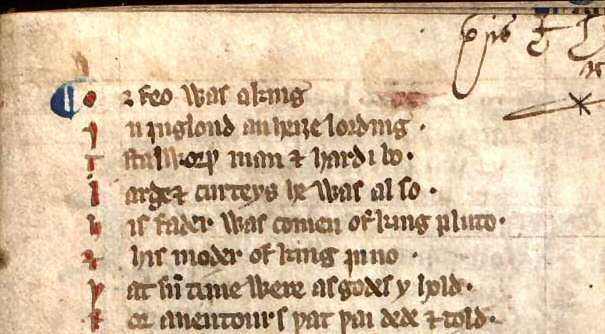 O rfeo was a king
I n inglond an heiȝe lording ·
A stalworþ man ⁊ hardi bo ·
L arge ⁊ curteys he was al so ·
H is fader was comen of king pluto ·
⁊ his moder of king iuno ·
þ at sū time were as godes y hold ·
F or auentours þat þai dede ⁊ told ·